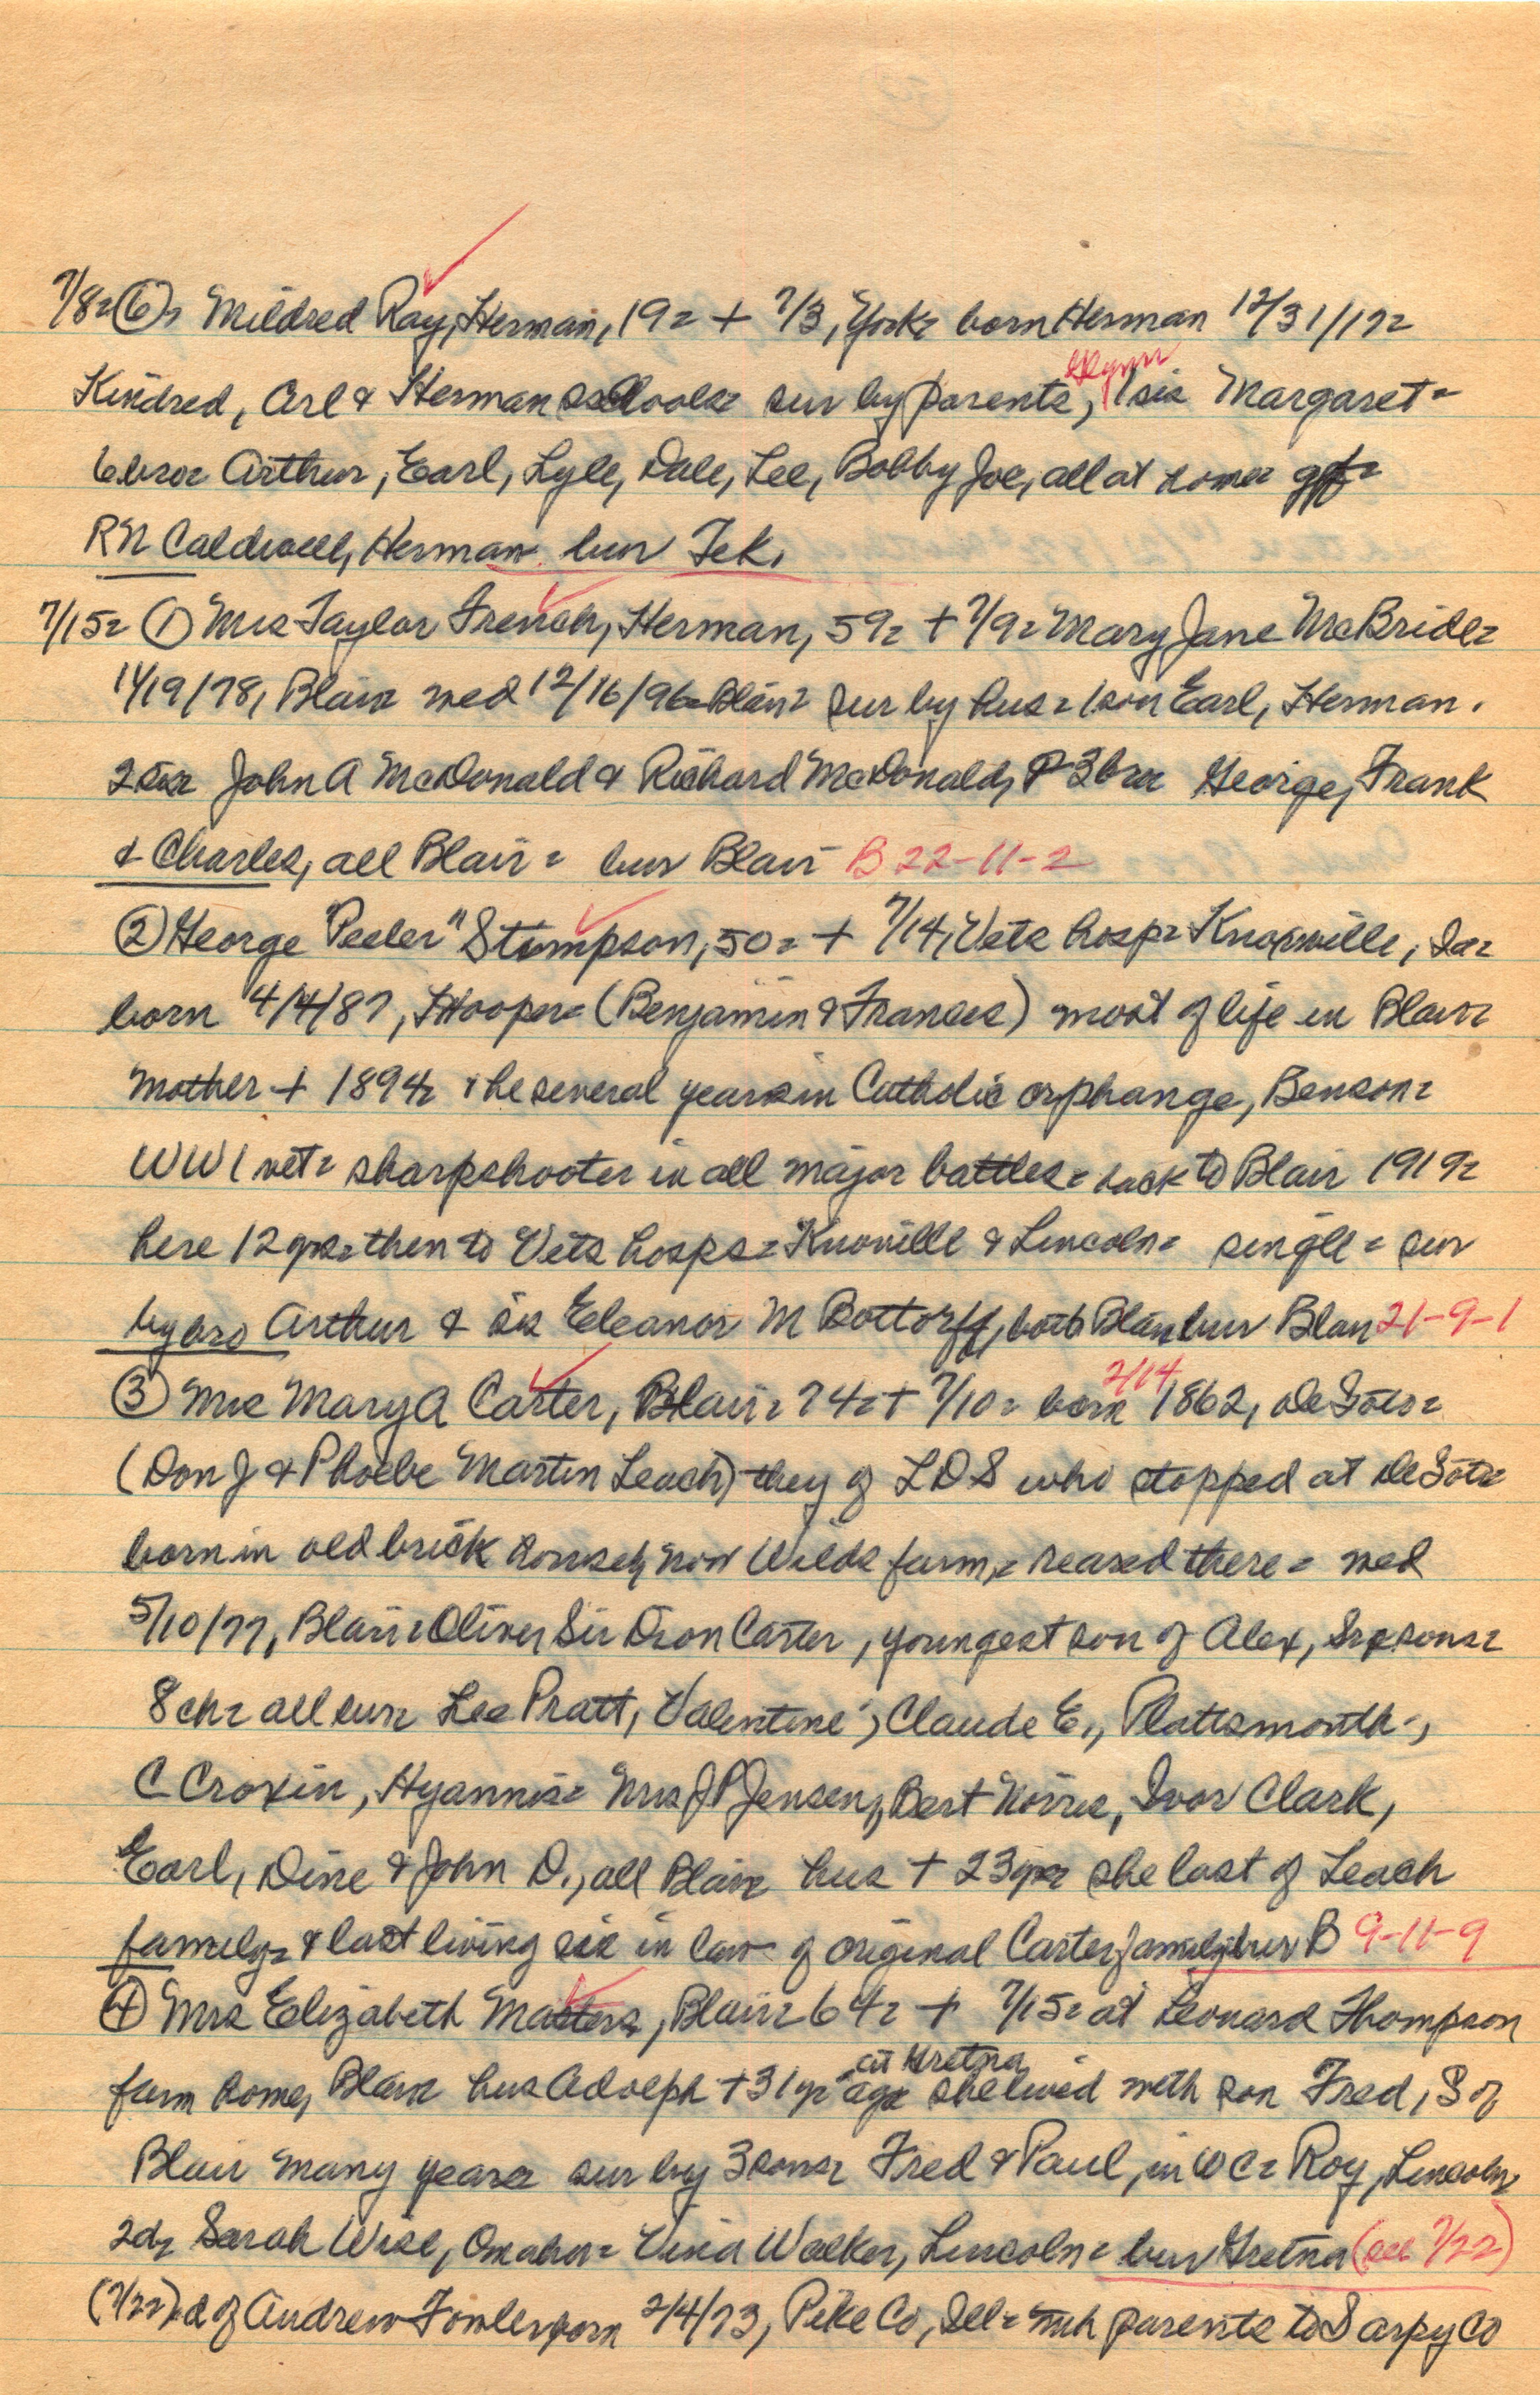 7/8= (6), Mildred Ray, Herman, 19= + 7/3, York= born Herman 12/31/17=
Kindred, Arl & Herman schools= sur by parents, 1 sis Margaret=
6 bro= Arthur, Earl, Lyle, Dale, Lee, Bobby Joe, all at home= gf=
RN Caldwell, Herman bur Tek.
7/15= (1) Mrs Taylor French, Herman, 59= + 7/9= Mary Jane McBride=
11/19/78, Blair= wed 12/16/96= Blair= sur by hus= 1 son Earl, Herman.
2 sis= John A McDonald & Richard McDonald, 3 bro= George, Frank
& Charles, all Blair= bur Blair B 22-11-2
(2) George "Peeler" Stimpson, 50= + 7/14, Vets hosp= Knoxville, Ia=
born 4/4/87, Hooper= (Benjamin & Frances) most of life in Blair=
Mother + 1894= & he several years in Catholic orphange, Benson=
WW1 vet= sharpshooter in all major battles= back to Blair 1919=
here 12 yrs= then to Vets hosps= Knoville & Lincoln= single= sur
by bro Arthur & sis Eleanor M Bottorff, both Blair bur Blair 21-9-1
(3) Mrs Mary A Carter, Blair= 74= + 7/10= born 2/14 1862, DeSoto=
(Don J & Phoebe Martin Leach) they of LDS who stopped at DeSoto=
born in old brick house, now Wilds farm,= reared there= wed
5/10/77, Blair= Oliver Sir Dion Carter, youngest son of Alex, Sr=
8 ch= all sur= Lee Pratt, Valentine; Claude E., Plattsmonth;
C Croxin, Hyannis= Mrs J P Jensen, Bert Norris, Ivor Clark,
Earl, Dine & John D., all Blair= hus + 23 yr= she last of Leach
family= & last living sis in law of original Carter family= bur B 9-11-9
(4) Mrs Elizabeth Masters, Blair= 64= + 7/15= at Leonard Thompson
farm home, Blair= hus Adolph + 31 yr ago at Gretna she lived with son Fred, S of
Blair many years= sur by 3 sons= Fred & Paul, in WC= Roy, Lincoln=
2d= Sarah Wise, Omaha= Vina Walker, Lincoln= bur Gretna (see 7/22)
(7/22) d of Andrew Fowler= born 2/4/73, Pike Co, Ill= with parents to Sarpy Co